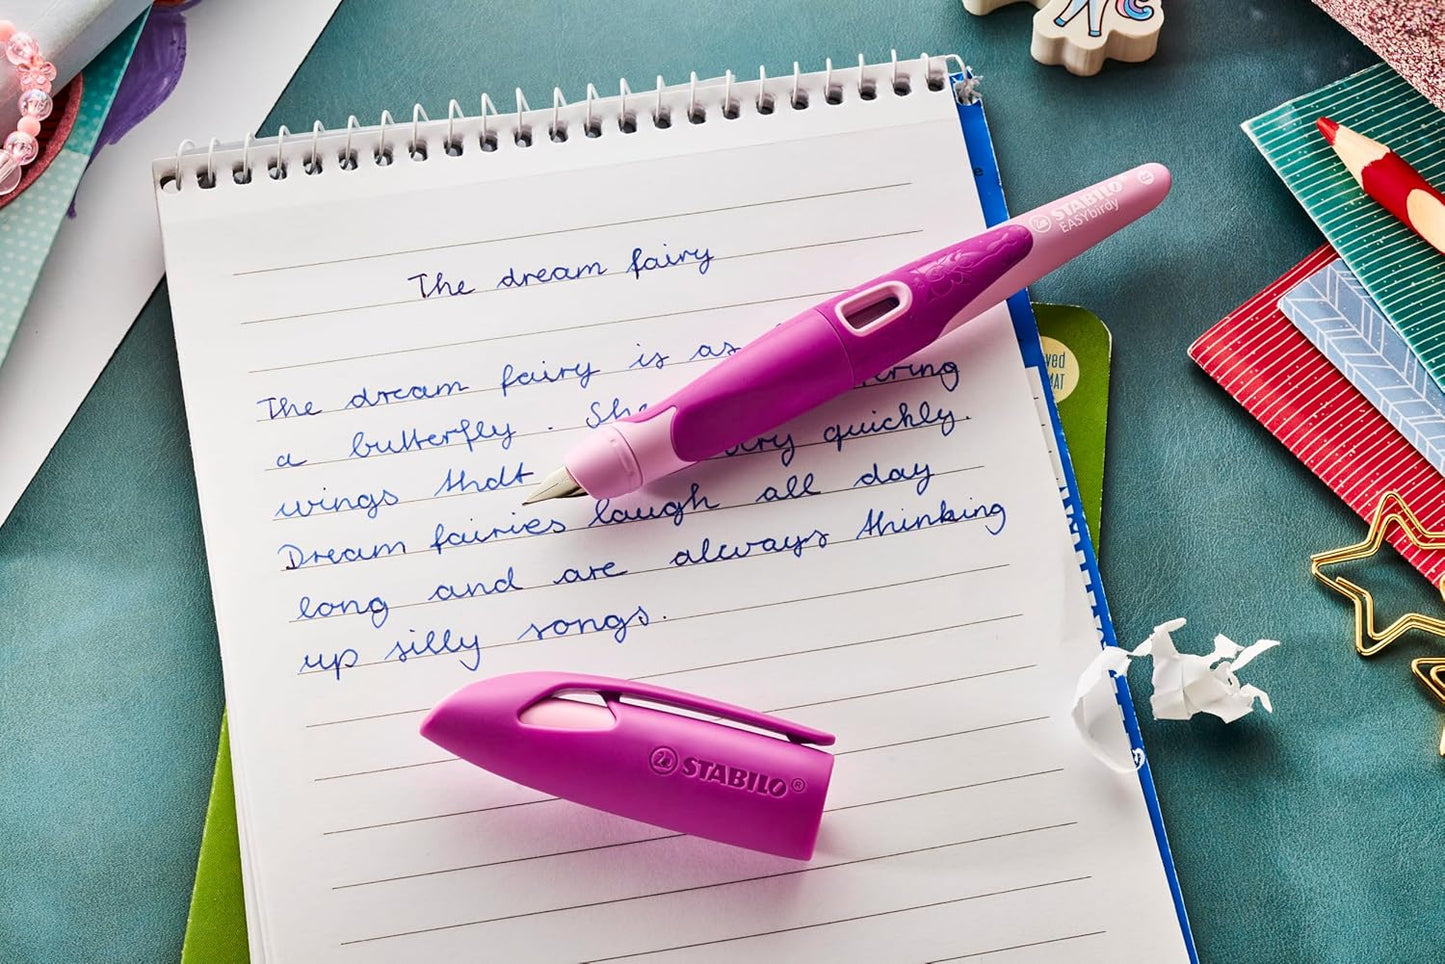 The dream fairy
The dream fairy is as
a butterfly. She
wings that very quickly.
Dream fairies laugh all day
long and are always thinking
up silly songs.
STABILO
EASYbirdy
STABILO®